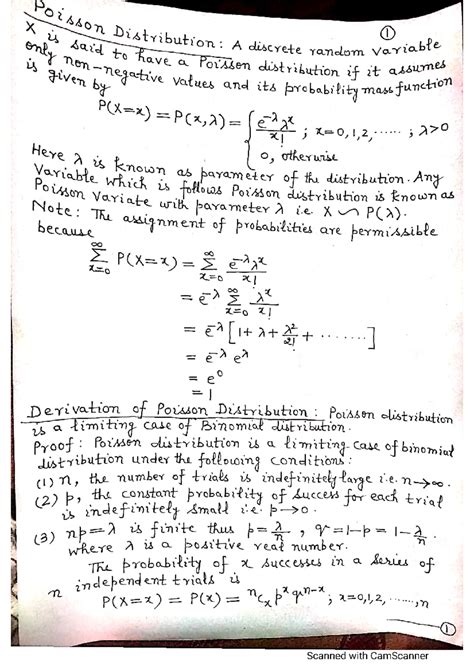 ①
Poisson Distribution: A discrete random variable
X is said to have a Poisson distribution if it assumes
only non-negative values and its probability mass function
is given by
P(X=x) = P(x,λ) = { e^{-λ} λ^x / x! ; x=0,1,2,...... ; λ>0
0, otherwise
Here λ is known as parameter of the distribution. Any
variable which is follows Poisson distribution is known as
Poisson variate with parameter λ i.e. X ∽ P(λ).
Note: The assignment of probabilities are permissible
because
∞∑x=0 P(X=x) = ∞∑x=0 e^{-λ} λ^x / x!
= e^{-λ} ∞∑x=0 λ^x / x!
= e^{-λ} [1+λ+ λ²/2! + ........]
= e^{-λ} e^λ
= e^0
= 1
Derivation of Poisson Distribution: Poisson distribution
is a limiting case of Binomial distribution.
Proof: Poisson distribution is a limiting case of binomial
distribution under the following conditions:
(1) n, the number of trials is indefinitely large i.e. n→∞.
(2) p, the constant probability of success for each trial
is indefinitely small i.e. p→0.
(3) np=λ is finite thus p=λ/n, q=1-p=1-λ/n
where λ is a positive real number.
The probability of x successes in a series of
n independent trials is
P(X=x) = P(x) = ⁿCₓ p^x q^{n-x}; x=0,1,2,......,n
①
Scanned with CamScanner